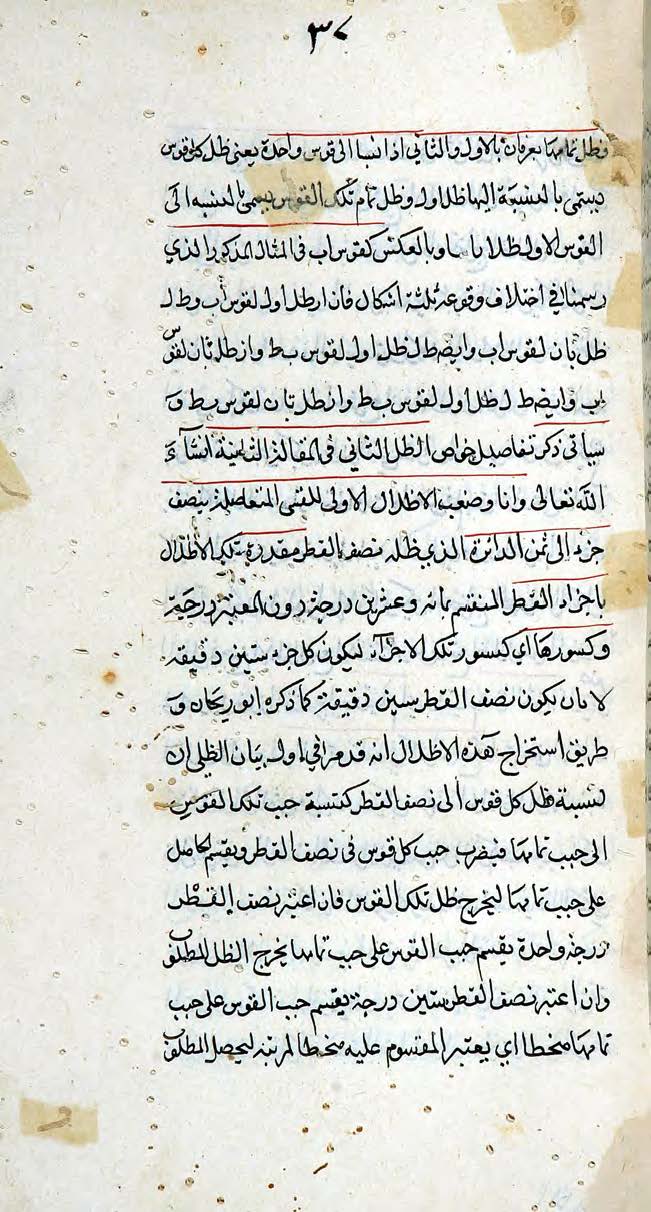 ٣٧
وظل تمامها يعرفان بالاول والثاني اذا نسبا الى قوس واحدة يعني ظل كل قوس
يسمى بالنسبة اليها ظلا اول وظل تمام تلك القوس يسمى بالنسبه الى
القوس الاول ظلا ثانيا وبالعكس كقوس اب في المثال المذكور الذي
رسمنا في اختلاف وقوعه ثلثة اشكال فان ار ظل اول لقوس اب وط ل
ظل ثان لقوس اب وايضا ط ل ظل اول لقوس ب ط وار ظل ثان لقوس
اب وايضا ط ل ظل اول لقوس ب ط وار ظل ثان لقوس ب ط و
سياتي ذكر تفاصيل خواص الظل الثاني في المقالة الثامنة انشآء
الله تعالى وانا وضعت الاظلال الاولى للقسي المتفاضلة بنصف
جزء الى ثمن الدائرة الذي ظله نصف القطر مقدرة تلك الاظلال
باجزاء القطر المنقسم بمائه وعشرين درجة دون المعينة درجة
وكسورها اي كسور تلك الاجزآء ليكون كل جزء ستين دقيقه
لا بان يكون نصف القطر ستين دقيقة كما ذكره ابو ريحان و
طريق استخراج هذه الاظلال انه قد مر في اول بيان الظل ان
نسبة ظل كل قوس الى نصف القطر كنسبة جيب تلك القوس
الى جيب تمامها فيضرب جيب كل قوس في نصف القطر ويقسم الحاصل
على جيب تمامها ليخرج ظل تلك القوس فان اعتبر نصف القطر
درجة واحدة يقسم جيب القوس على جيب تمامها يخرج الظل المطلوب
وان اعتبر نصف القطر ستين درجة يقسم جيب القوس على جيب
تمامها منحطا اي يعتبر المقسوم عليه منحطا لمرتبه ليحصل المطلوب